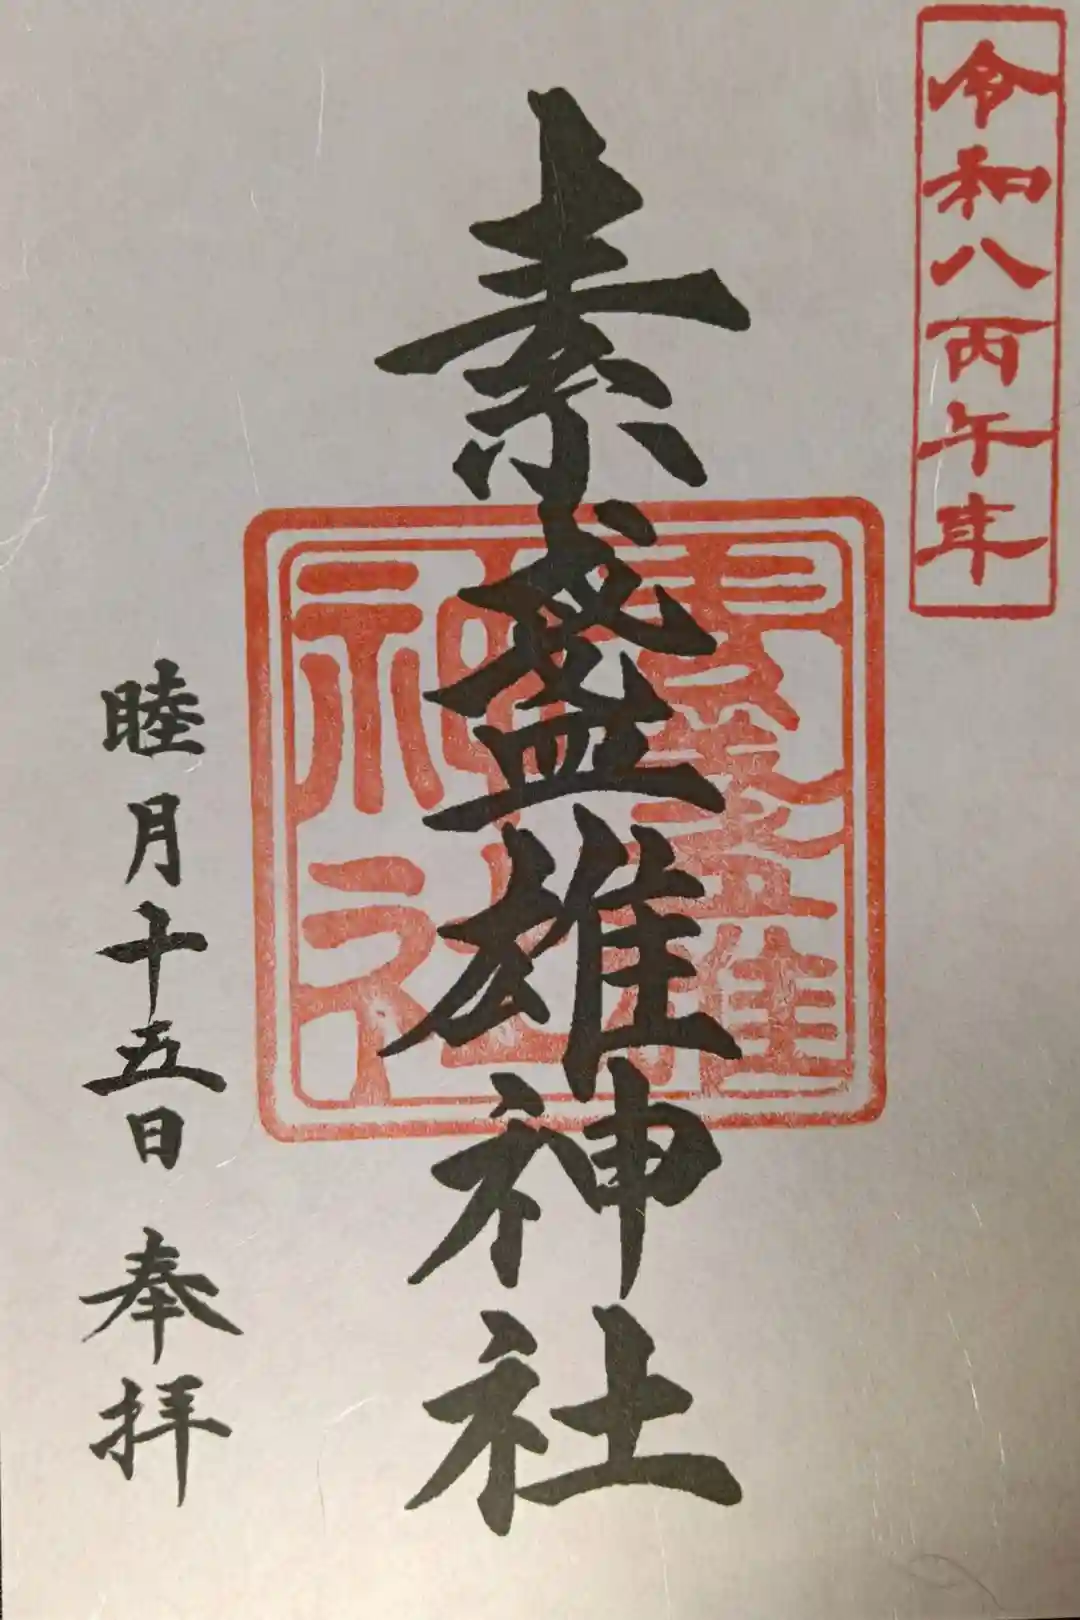 令和八丙午年
素盞雄神社
素盞雄
神社
睦月十五日 奉拝